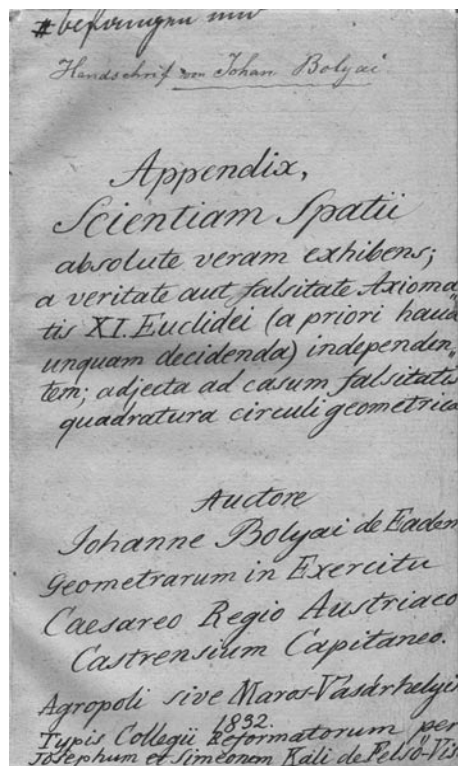 Handschrift von Johan. Bolyai
Appendix,
Scientiam Spatii
absolute veram exhibens;
a veritate aut falsitate Axioma„
tis XI. Euclidei (a priori haud
unquam decidenda) independen„
tem; adjecta ad casum falsitatis
quadratura circuli geometrica
Auctore
Johanne Bolyai de Eadem
Geometrarum in Exercitu
Caesareo Regio Austriaco
Castrensium Capitaneo.
Agropoli sive Maros-Vásárhelyi
1832.
Typis Collegii Reformatorum per
Josephum et Simeonem Kali de Felső-Vis